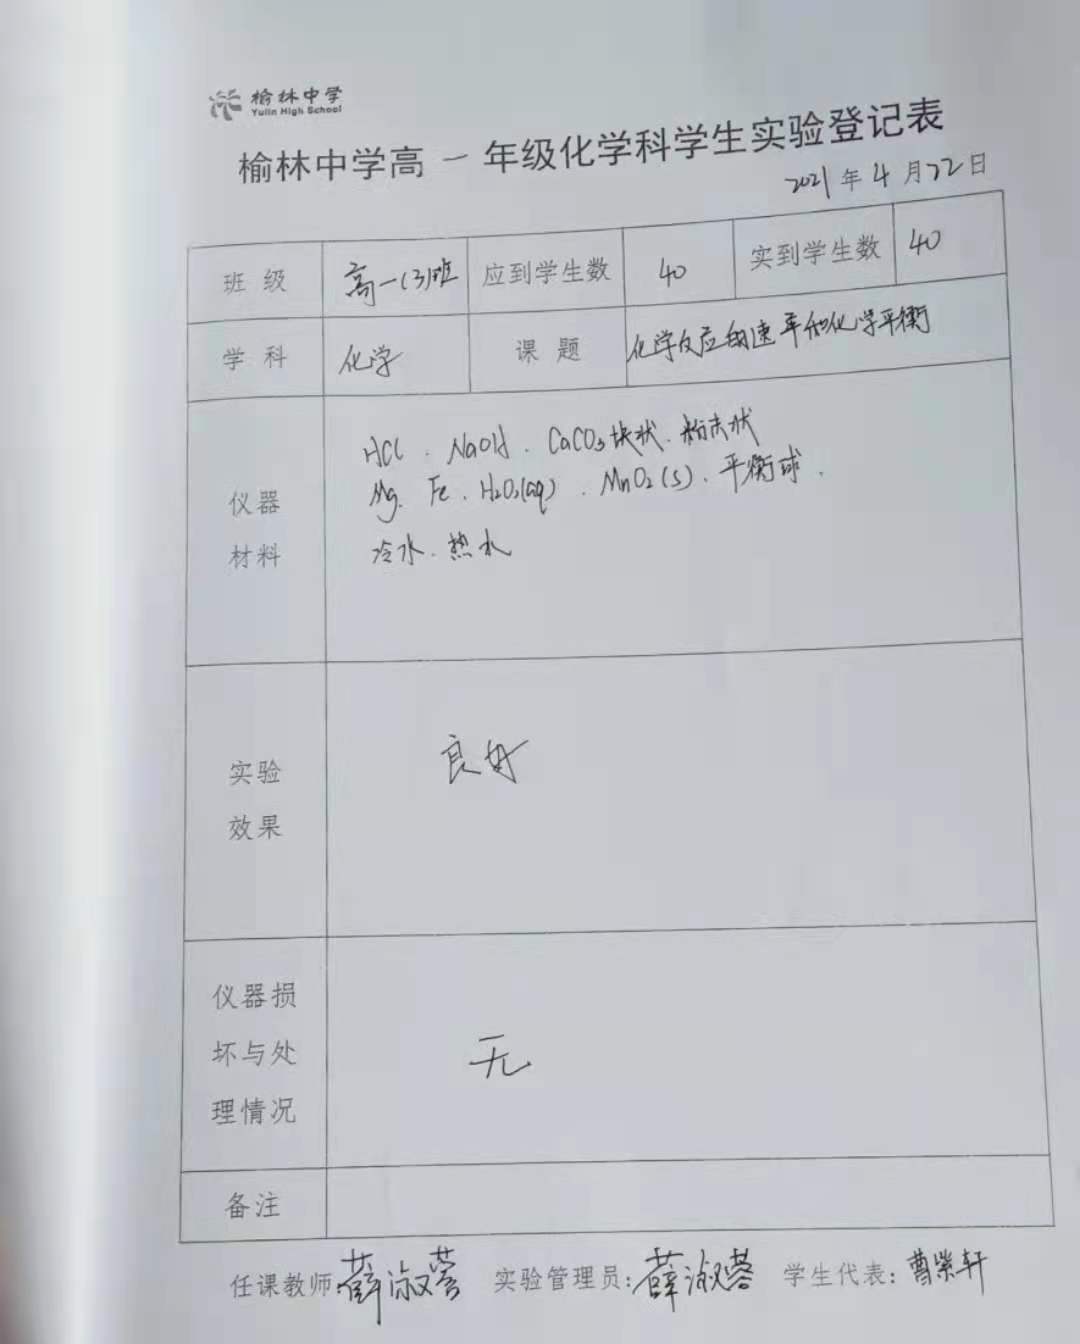 榆林中学
Yulin High School
榆林中学高 一 年级化学科学生实验登记表
2021 年 4 月 22 日
班 级 高一(3)班 应到学生数 40 实到学生数 40
学 科 化学 课 题 化学反应的速率和化学平衡
仪器
材料
HCl . NaOH . CaCO₃ 块状. 粉末状
Mg. Fe . H₂O₂(aq) . MnO₂(s). 平衡球 .
冷水. 热水
实验
效果
良好
仪器损
坏与处
理情况
无
备注
任课教师:薛淑蓉 实验管理员:薛淑蓉 学生代表:曹紫轩